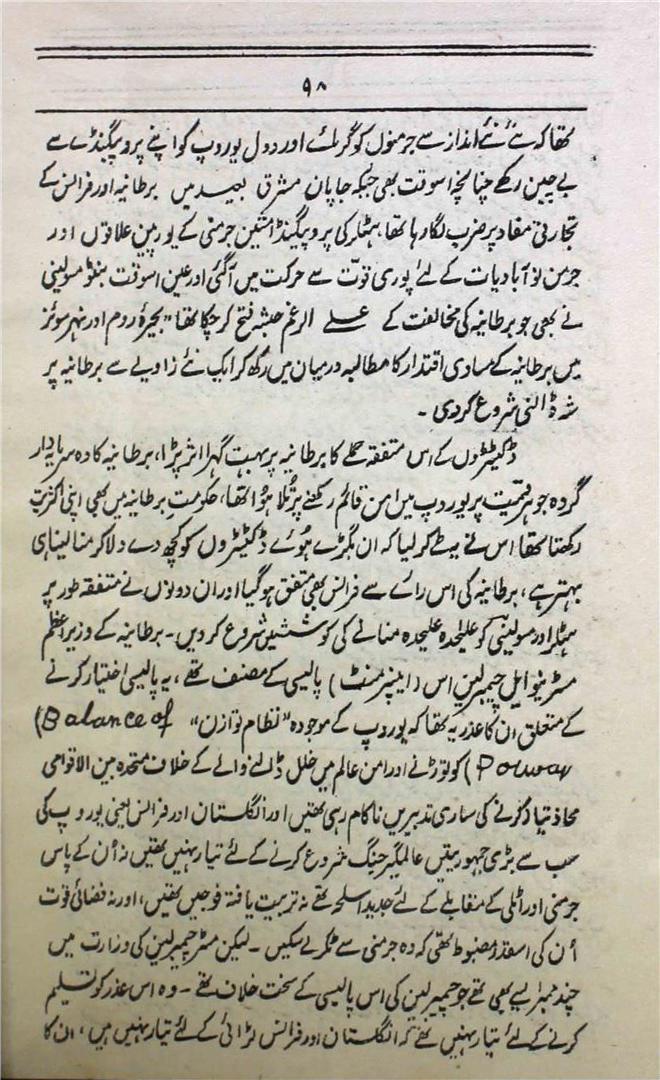 ۹۸
تھا کہ نئے نئے انداز سے جرمنوں کو گرمائے اور دول یوروپ کو اپنے پروپیگنڈے سے
بے چین رکھے چنانچہ اسوقت بھی جبکہ جاپان مشرق بعید میں برطانیہ اور فرانس کے
تجارتی مفاد پر ضرب لگا رہا تھا ہٹلر کی پروپیگنڈا مشین جرمنی کے یورپین علاقوں اور
جرمن نو آبادیات کے لئے پوری قوت سے حرکت میں آگئی اور عین اسوقت بنٹو مسولینی
نے بھی جو برطانیہ کی مخالفت کے علے الرغم حبشہ فتح کر چکا تھا "بحیرۂ روم اور نہر سوئز
میں برطانیہ کے مساوی اقتدار کا مطالبہ درمیان میں رکھ کر ایک نئے زاویے سے برطانیہ پر
شہ ڈالنی شروع کر دی ۔
ڈکٹیٹروں کے اس متفقہ حملے کا برطانیہ پر بہت گہرا اثر پڑا، برطانیہ کا وہ سرمایہ دار
گروہ جو ہر قیمت پر یوروپ میں امن قائم رکھنے پر تُلا ہوا تھا، حکومتِ برطانیہ میں بھی اپنی اکثریت
رکھتا تھا اس نے طے کر لیا کہ ان بگڑے ہوئے ڈکٹیٹروں کو کچھ دے دلا کر منا لینا ہی
بہتر ہے، برطانیہ کی اس رائے سے فرانس بھی متفق ہو گیا اور ان دونوں نے متفقہ طور پر
ہٹلر اور مسولینی کو علیٰحدہ علیحدہ منانے کی کوششیں شروع کر دیں ۔ برطانیہ کے وزیراعظم
مسٹر نیوایل چیمبرلین اس (اپیزمنٹ) پالیسی کے مصنف تھے ، یہ پالیسی اختیار کرنے
کے متعلق ان کا عذر یہ تھا کہ یوروپ کے موجودہ "نظام توازن" (Balance of
Power) کو توڑنے اور امن عالم میں خلل ڈالنے والے کے خلاف متحدہ بین الاقوامی
محاذ تیار کرنے کی ساری تدبیریں ناکام رہی تھیں اور انگلستان اور فرانس یعنی یوروپ کی
سب سے بڑی جمہوریتیں عالمگیر جنگ شروع کرنے کے لئے تیار نہیں تھیں نہ اُن کے پاس
جرمنی اور اٹلی کے مقابلے کے لئے جدید اسلحہ تھے نہ تربیت یافتہ فوجیں تھیں، اور نہ فضائی قوت
اُن کی اسقدر مضبوط تھی کہ وہ جرمنی سے ٹکر لے سکیں ۔ لیکن مسٹر چیمبرلین کی وزارت میں
چند ممبر ایسے بھی تھے جو چیمبرلین کی اس پالیسی کے سخت خلاف تھے ۔ وہ اس عذر کو تسلیم
کرنے کے لئے تیار نہیں تھے کہ انگلستان اور فرانس لڑائی کے لئے تیار نہیں ہیں ، ان کا